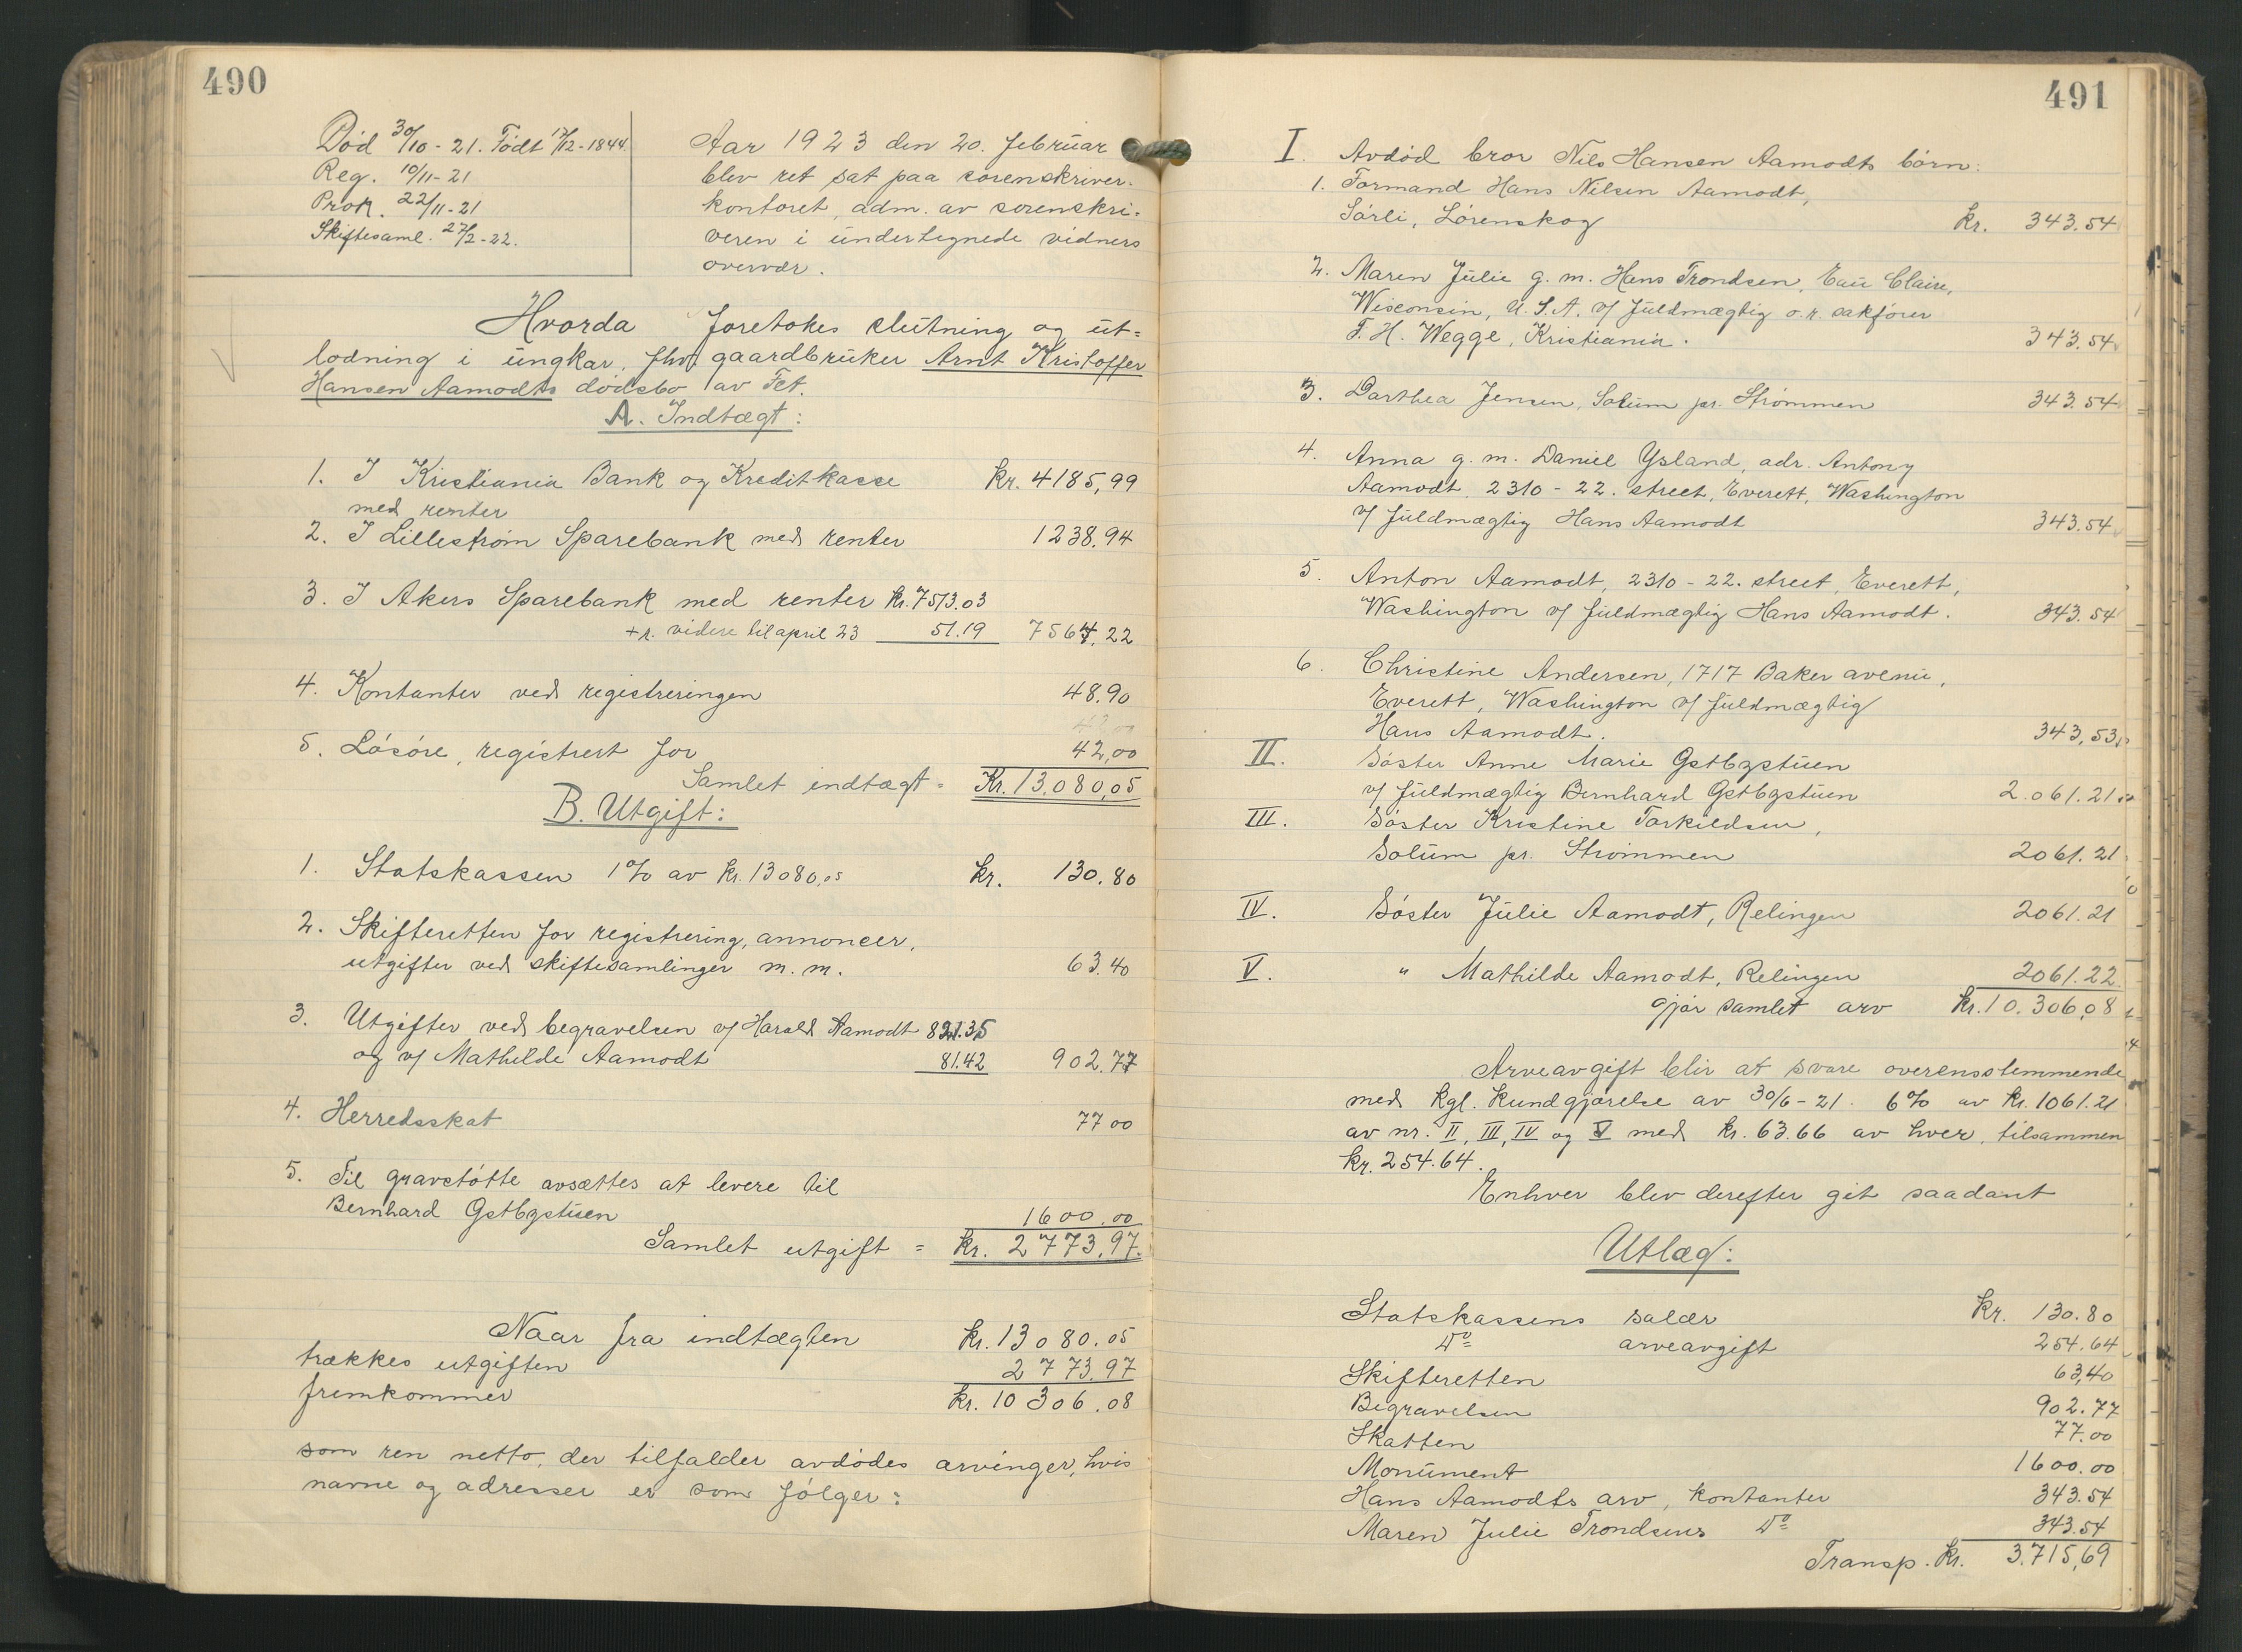 490
Død 30/10-21. Født 17/12-1844.
Reg. 10/11-21
Prok. 22/11-21
Skiftesaml. 27/2-22.
Aar 1923 den 20. februar
blev ret sat paa sorenskriver-
kontoret, adm. av sorenskri-
veren i undertegnede vidners
overvær.
Hvorda foretokes slutning og ut-
lodning i ungkar, fhv. gaardbruker Arnt Kristoffer
Hansen Aamodts dødsbo av Fet.
A. Indtægt:
1. I Kristiania Bank og Kreditkasse kr. 4185,99
med renter
2. I Lillestrøm Sparebank med renter 1238.94
3. I Akers Sparebank med renter kr. 7513.03
+ r. videre til april 23 51.19 7564,22
4. Kontanter ved registreringen 48.90
5. Løsøre, registrert for 42,00
Samlet indtægt = Kr. 13.080,05
B. Utgift:
1. Statskassen 1% av kr. 13080,05 kr. 130.80
2. Skifteretten for registrering, annoncer,
utgifter ved skiftesamlinger m.m. 63.40
3. Utgifter ved begravelsen v/ Harald Aamodt 821.35
og v/ Mathilde Aamodt 81.42 902.77
4. Herredsskat 77 00
5. Til gravstøtte avsættes at levere til
Bernhard Østbystuen 1600.00
Samlet utgift = kr. 2773,97.
Naar fra indtægten kr. 13080.05
trækkes utgiften 2773.97
fremkommer kr. 10306.08
som ren netto, der tilfalder avdødes arvinger, hvis
navne og adresser er som følger:
491
I. Avdød bror Nils Hansen Aamodts børn:
1. Formand Hans Nilsen Aamodt,
Sørli, Lørenskog kr. 343.54
2. Maren Julie g. m. Hans Trondsen, Eau Claire,
Wisconsin, U.S.A. v/ fuldmægtig o.r. sakfører
F. H. Wegge, Kristiania. 343.54
3. Dorthea Jensen, Solum pr. Strømmen 343.54
4. Anna g. m. Daniel Ysland, adr. Antony
Aamodt, 2310 - 22. street, Everett, Washington
v/ fuldmægtig Hans Aamodt 343.54
5. Anton Aamodt, 2310 - 22. street, Everett,
Washington v/ fuldmægtig Hans Aamodt. 343.54
6. Christine Andersen, 1717 Baker avenu,
Everett, Washington v/ fuldmægtig
Hans Aamodt. 343,53
II. Søster Anne Marie Østbystuen
v/ fuldmægtig Bernhard Østbystuen 2.061.21
III. Søster Kristine Torkildsen,
Solum pr. Strømmen 2061.21
IV. Søster Julie Aamodt, Relingen 2061.21
V. " Mathilde Aamodt, Relingen 2061.22
gjør samlet arv kr. 10.306,08
Arveavgift blir at svare overensstemmende
med kgl. kundgjørelse av 30/6-21. 6% av kr. 1061.21
av nr. II, III, IV og V med kr. 63.66 av hver, tilsammen
kr. 254.64.
Enhver blev derefter git saadant
Utlæg:
Statskassens salær kr. 130.80
Do arveavgift 254.64
Skifteretten 63,40
Begravelsen 902.77
Skatten 77.00
Monument 1600.00
Hans Aamodts arv, kontanter 343.54
Maren Julie Trondsens Do 343.54
Transp. kr. 3.715,69